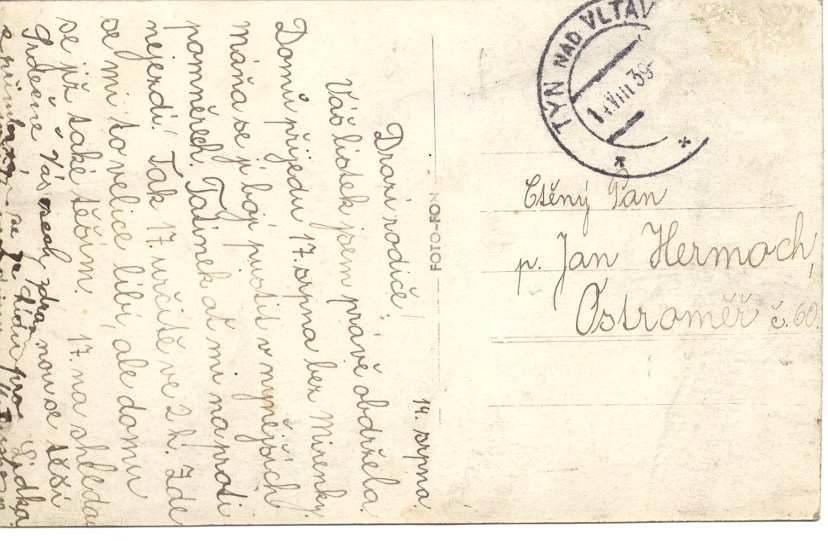 14. srpna
Drazí rodiče!
Váš lístek jsem právě obdržela.
Domů přijedu 17. srpna bez Mirenky,
Máňa se jí bojí pustit v nynějších
poměrech. Tatínek ať mi naproti
nejezdí! Tak 17. určitě ve 2 h. Zde
se mi to velice líbí, ale domů
se již také těším. 17. na shleda
nou se těší
Srdečně Vás zdraví
Lidka
TÝN NAD VLTAV
VIII 39
Ctěný Pan
p. Jan Hermoch,
Ostroměř č. 60.
FOTO-FON